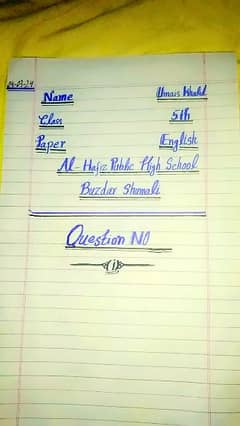 Name Umais Khalid
Class 5th
Paper English
Al-Hafiz Public High School
Buzdar Shumali
Question NO
1